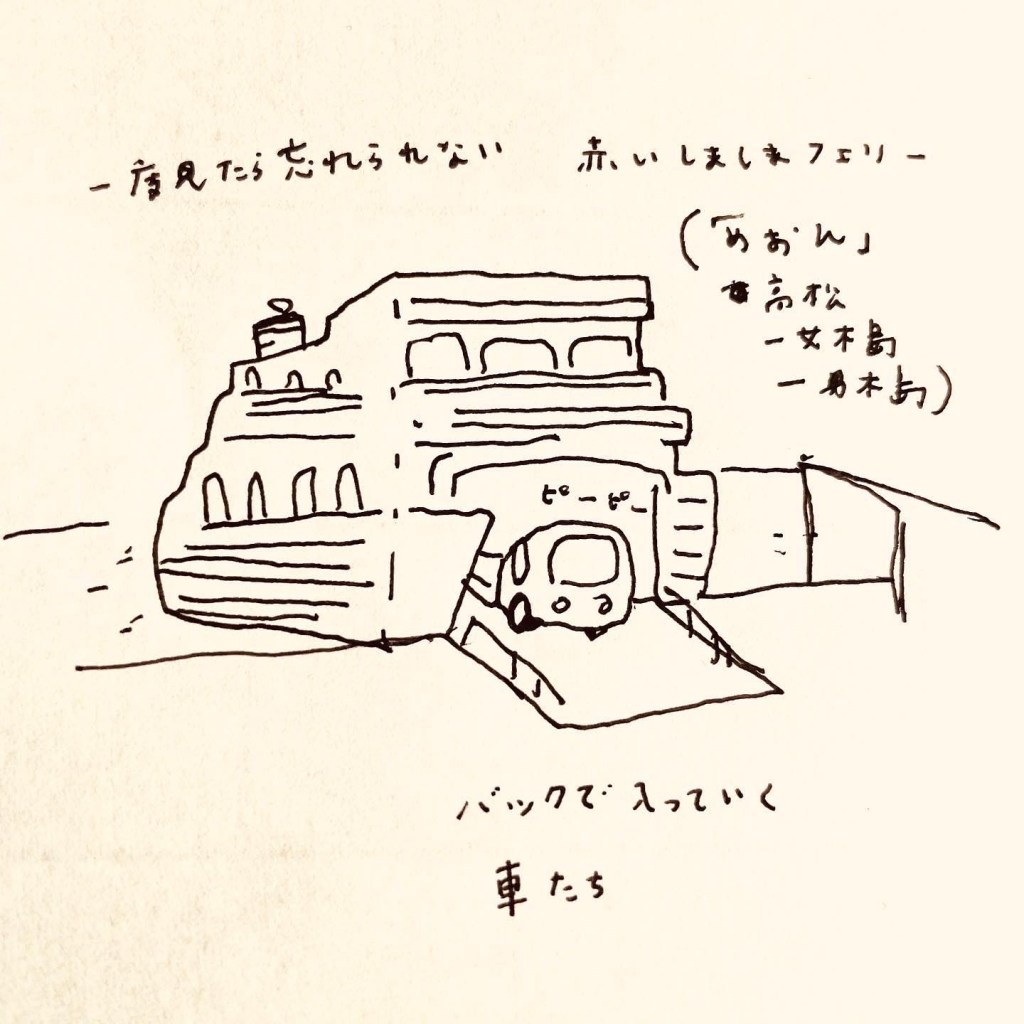 一度見たら忘れられない 赤いしましまフェリー
(「めおん」
高松
ー女木島
ー男木島)
ピーピー
バックで入っていく
車たち